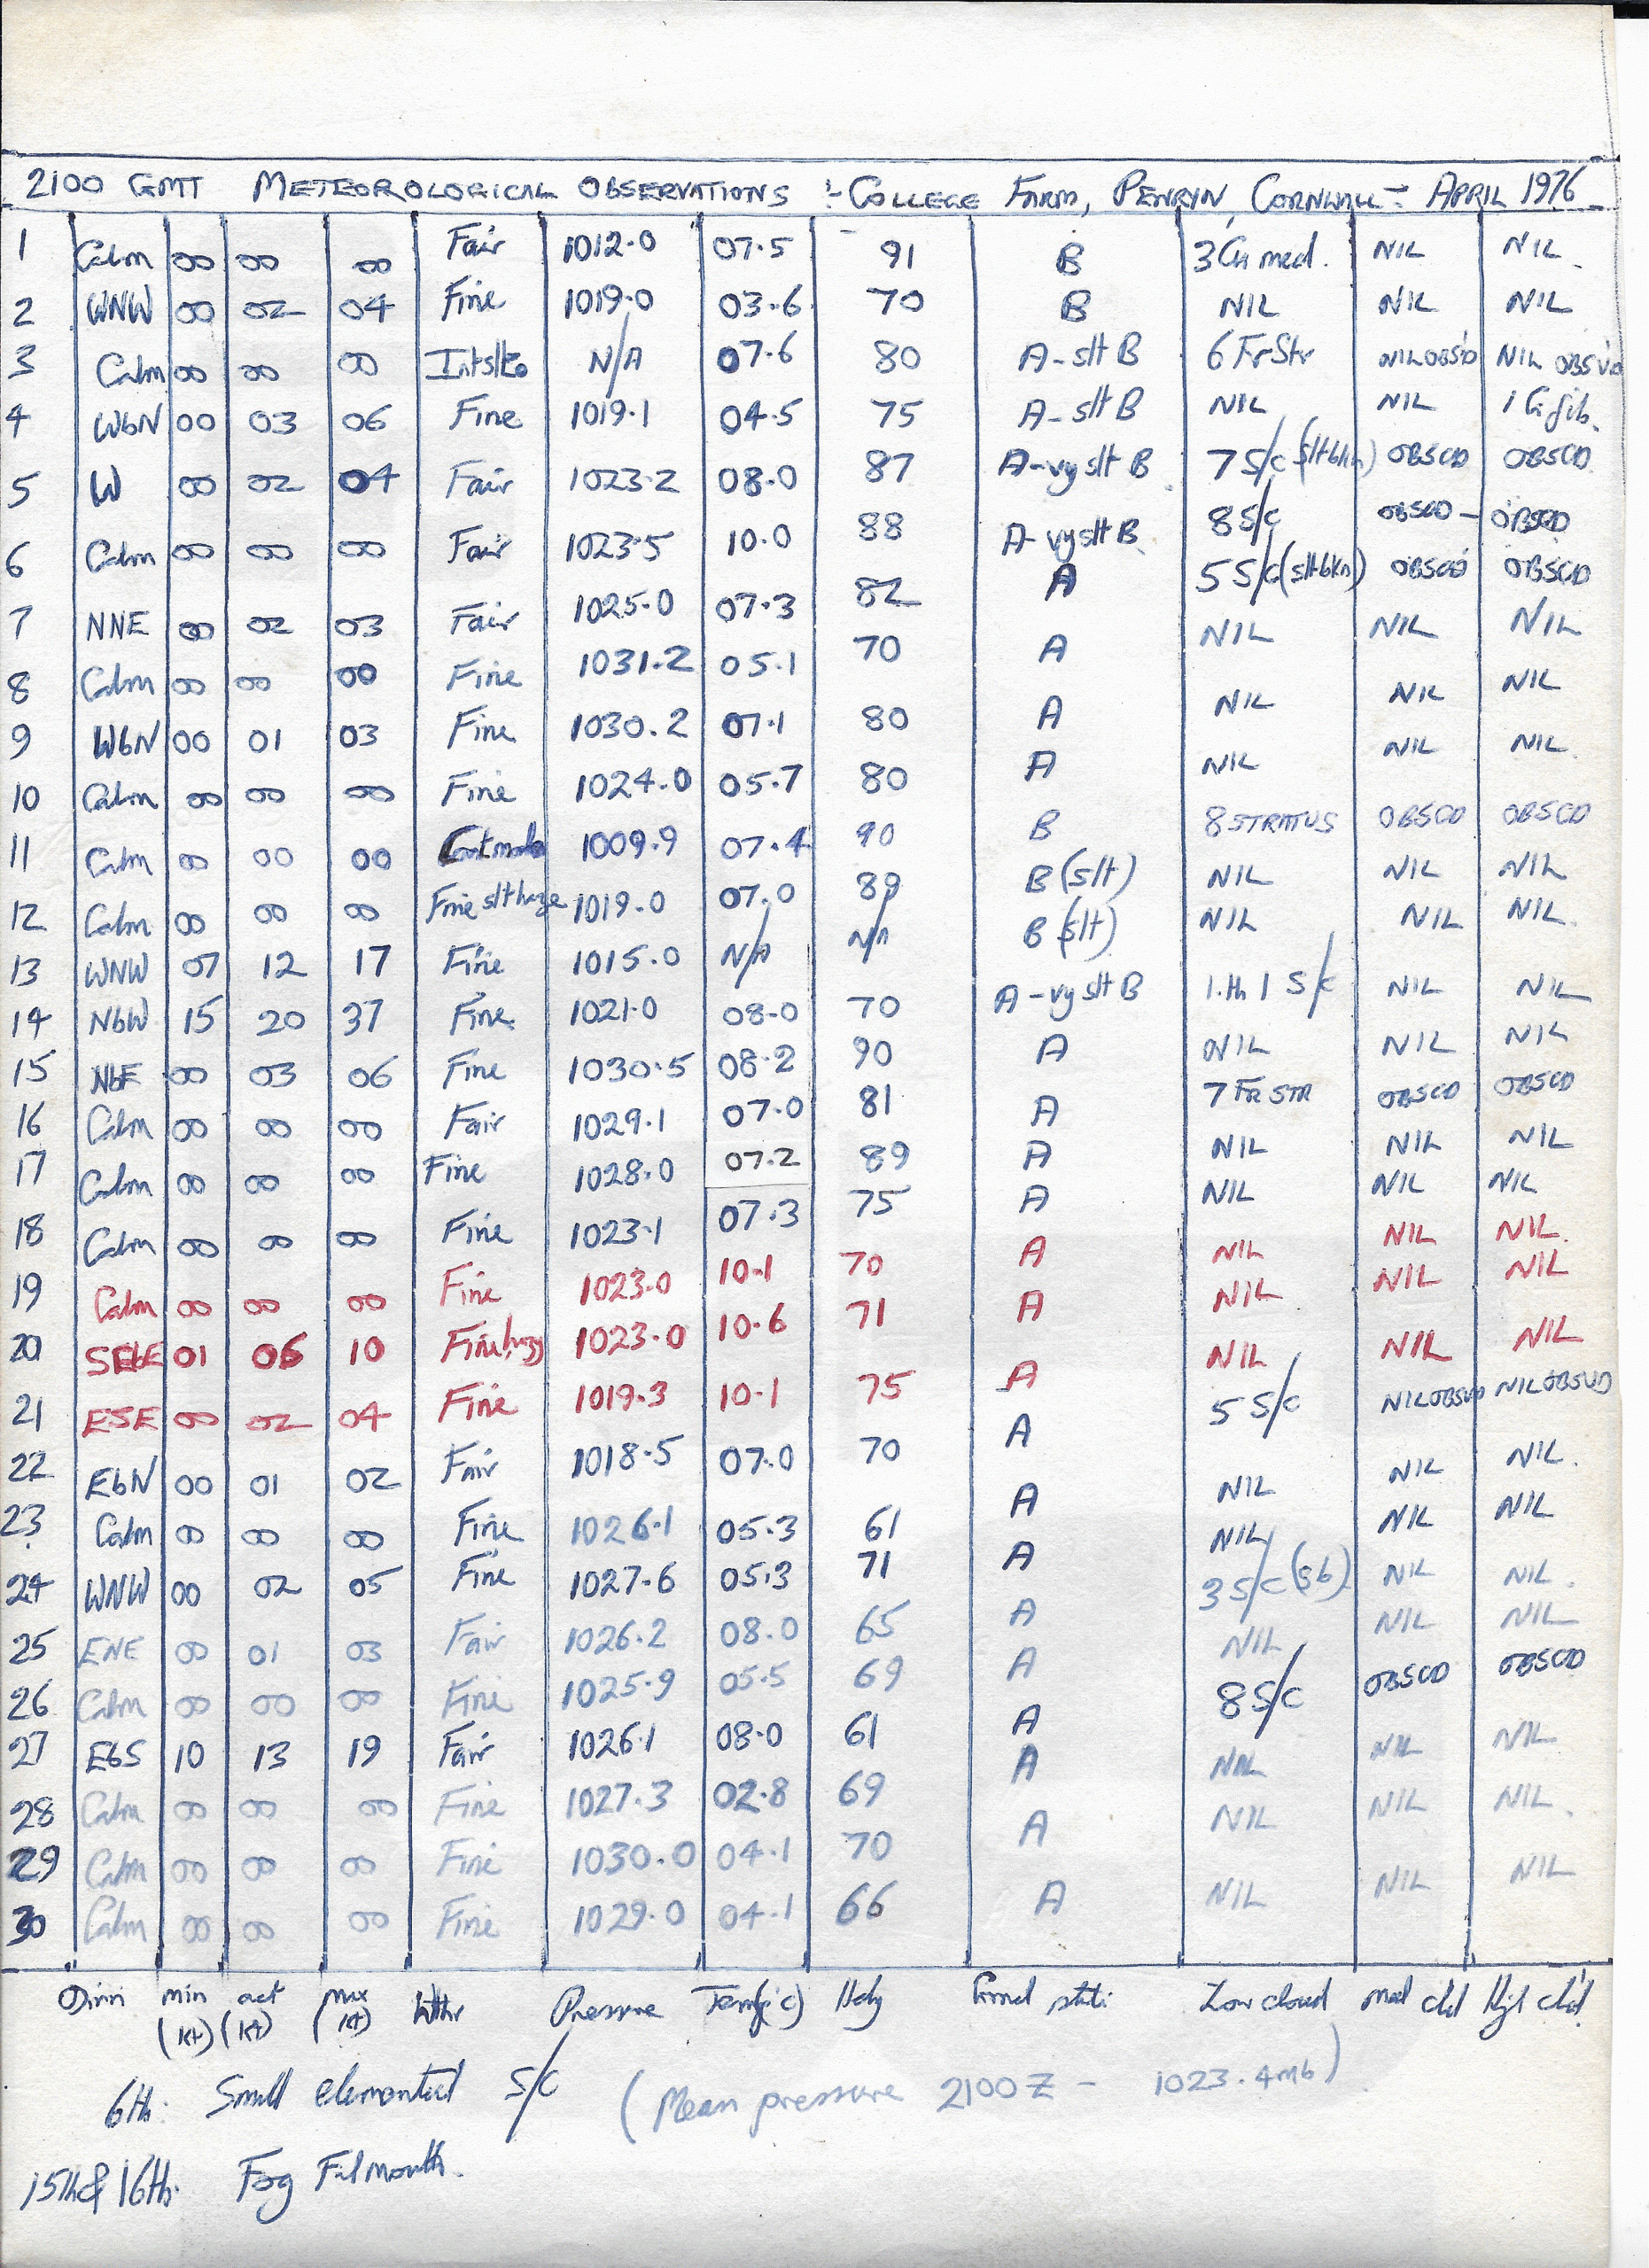 2100 GMT METEOROLOGICAL OBSERVATIONS :- COLLEGE FARM, PENRYN, CORNWALL :- APRIL 1976
1 Calm 00 00 00 Fair 1012.0 07.5 91 B 3 Cu med. NIL NIL
2 WNW 00 02 04 Fine 1019.0 03.6 70 B NIL NIL NIL
3 Calm 00 00 00 N/A 07.6 80 A-slt B 6 FrStr NIL OBSD NIL OBSVD
4 WbN 00 03 06 Fine 1019.1 04.5 75 A-slt B NIL NIL 1 Ci fib.
5 W 00 02 04 Fair 1023.2 08.0 87 A-vy slt B 7 S/c (slt bkn) OBSCD OBSCD
6 Calm 00 00 00 Fair 1023.5 10.0 88 A-vy slt B 8 S/c OBSCD - OBSCD
7 NNE 00 02 03 Fair 1025.0 07.3 82 A 5 S/c (slt bkn) OBSCD OBSCD
8 Calm 00 00 00 Fine 1031.2 05.1 70 A NIL NIL NIL
9 WbN 00 01 03 Fine 1030.2 07.1 80 A NIL NIL NIL
10 Calm 00 00 00 Fine 1024.0 05.7 80 A NIL NIL NIL
11 Calm 00 00 00 1009.9 07.4 90 B 8 STRATUS OBSCD OBSCD
12 Calm 00 00 00 Fine slt haze 1019.0 07.0 89 B (slt) NIL NIL NIL
13 WNW 07 12 17 Fine 1015.0 N/A N/A B (slt) NIL NIL NIL.
14 NbW 15 20 37 Fine 1021.0 08.0 70 A-vy slt B 1 S/c NIL NIL
15 NbE 00 03 06 Fine 1030.5 08.2 90 A NIL NIL NIL
16 Calm 00 00 00 Fair 1029.1 07.0 81 A 7 FR STR OBSCD OBSCD
17 Calm 00 00 00 Fine 1028.0 07.2 89 A NIL NIL NIL
18 Calm 00 00 00 Fine 1023.1 07.3 75 A NIL NIL NIL
19 Calm 00 00 00 Fine 1023.0 10.1 70 A NIL NIL NIL.
20 SEbE 01 06 10 Fine hazy 1023.0 10.6 71 A NIL NIL NIL
21 ESE 00 02 04 Fine 1019.3 10.1 75 A NIL NIL NIL
22 EbN 00 01 02 Fair 1018.5 07.0 70 A 5 S/c NIL OBSVD NIL OBSVD
23 Calm 00 00 00 Fine 1026.1 05.3 61 A NIL NIL NIL.
24 WNW 00 02 05 Fine 1027.6 05.3 71 A NIL NIL NIL
25 ENE 00 01 03 Fair 1026.2 08.0 65 A 3 S/c (sb) NIL NIL.
26 Calm 00 00 00 Fine 1025.9 05.5 69 A NIL NIL NIL
27 EbS 10 13 19 Fair 1026.1 08.0 61 A 8 S/c OBSCD OBSCD
28 Calm 00 00 00 Fine 1027.3 02.8 69 A NIL NIL NIL
29 Calm 00 00 00 Fine 1030.0 04.1 70 A NIL NIL NIL.
30 Calm 00 00 00 Fine 1029.0 04.1 66 A NIL NIL NIL
Dirn min (kt) act (kt) max (kt) Wthr Pressure Temp(°c) Hdy Grnd state Low cloud med cld High cld
6th: Small elemental S/C (Mean pressure 2100Z - 1023.4mb)
15th & 16th. Fog Falmouth.